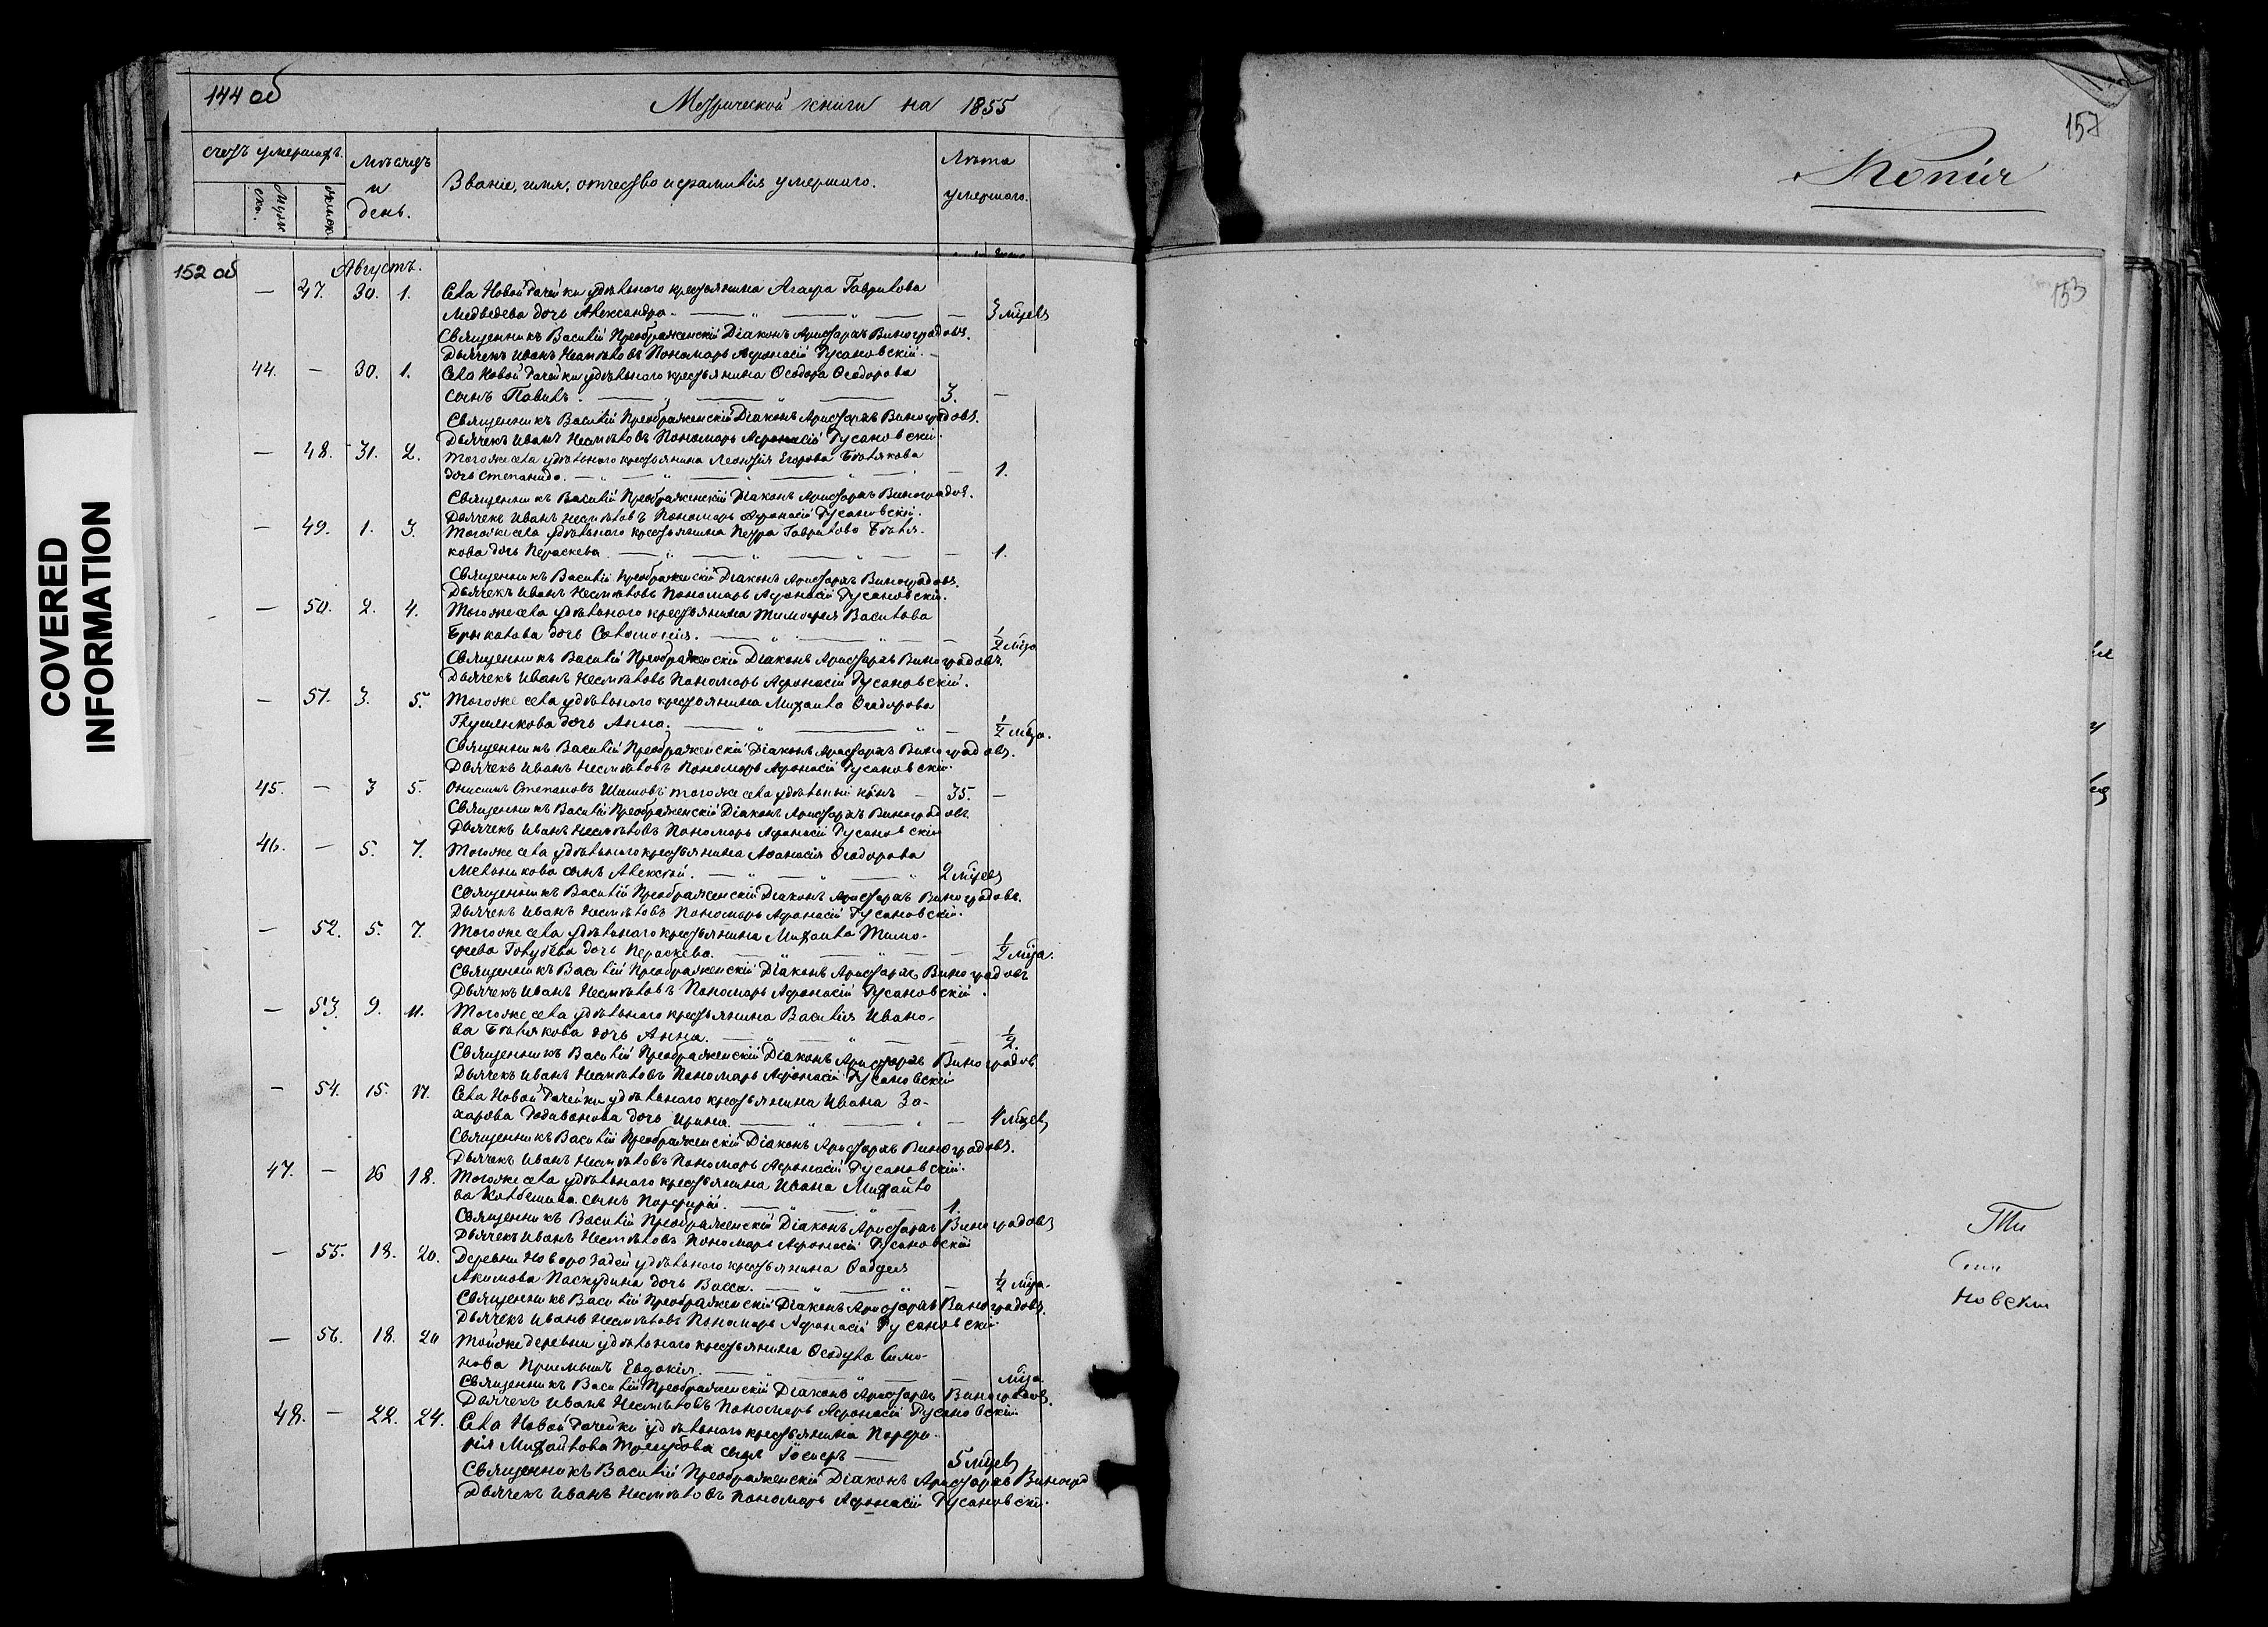 144 об
Метрической книги на 1855
счетъ умершихъ.
Мѣсяцъ
и
день.
Званіе, имя, отчество и фамилія умершаго.
Лѣта
умершаго.
Муже
ска.
женск.
152 об
Августъ.
— 47. 30. 1. Села Новой Рачейки удѣльнаго крестьянина Агафа Гаврилова
Медведева дочь Александра. — — 3 мѣсецъ
Священникъ Василій Преображенскій Діаконъ Аристархъ Виноградовъ.
Дьячекъ Иванъ Несмѣловъ Пономарь Афонасій Русановскій.
44. — 30. 1. Села Новой Рачейки удѣльнаго крестьянина Ѳеодора Ѳеодорова
сынъ Павилъ. — 3. —
Священникъ Василій Преображенскій Діаконъ Аристархъ Виноградовъ.
Дьячекъ Иванъ Несмѣловъ Пономарь Афонасій Русановскій.
— 48. 31. 2. Тогоже села удѣльнаго крестьянина Леонтія Егорова Бѣлякова
дочь Степанида. — — 1.
Священникъ Василій Преображенскій Діаконъ Аристархъ Виноградов.
Дьячекъ Иванъ Несмѣловъ Пономарь Афонасій Русановскій.
— 49. 1. 3. Тогоже села удѣльнаго крестьянина Петра Гаврилова Бѣля-
кова дочь Пераскева. — — 1.
Священникъ Василій Преображенскій Діаконъ Аристархъ Виноградовъ.
Дьячекъ Иванъ Несмѣловъ Пономарь Афонасій Русановскій.
— 50. 2. 4. Тогоже села удѣльнаго крестьянина Тимофея Василова
Брыкалова дочь Соломонія. — — ½ мѣца
Священникъ Василій Преображенскій Діаконъ Аристархъ Виноградовъ.
Дьячекъ Иванъ Несмѣловъ Пономарь Афонасій Русановскій.
— 51. 3. 5. Тогоже села удѣльнаго крестьянина Михаила Ѳеодорова
Глушенкова дочь Анна. — — ½ мѣца.
Священникъ Василій Преображенскій Діаконъ Аристархъ Виноградовъ.
Дьячекъ Иванъ Несмѣловъ Пономарь Афонасій Русановскій.
45. — 3 5. Онисимъ Степановъ Шишовъ тогоже села удѣльный кр͠нъ — 35. —
Священникъ Василій Преображенскій Діаконъ Аристархъ Виноградовъ
Дьячекъ Иванъ Несмѣловъ Пономарь Афонасій Русановскій
46. — 5. 7. Тогоже села удѣльнаго крестьянина Аѳанасія Ѳеодорова
Мельникова сынъ Алексѣй. — 2 мѣцевъ
Священникъ Василій Преображенскій Діаконъ Аристархъ Виноградовъ.
Дьячекъ Иванъ Несмѣловъ Пономарь Афонасій Русановскій.
— 52. 5. 7. Тогоже села удѣльнаго крестьянина Михаила Тимо-
феева Голубева дочь Пераскева. — — ½ мѣца.
Священникъ Василій Преображенскій Діаконъ Аристархъ Виноградовъ
Дьячекъ Иванъ Несмѣловъ Пономарь Афонасій Русановскій.
— 53. 9. 11. Тогоже села удѣльнаго крестьянина Василія Ивано-
ва Бѣлякова дочь Анна. — — ½.
Священникъ Василій Преображенскій Діаконъ Аристархъ Виноградов
Дьячекъ Иванъ Несмѣловъ Пономарь Афонасій Русановскій
— 54. 15. 17. Села Новой Рачейки удѣльнаго крестьянина Ивана За-
харова Радивонова дочь Ирина. — — 4 мѣцевъ
Священникъ Василій Преображенскій Діаконъ Аристархъ Виноградовъ.
Дьячекъ Иванъ Несмѣловъ Пономарь Афонасій Русановскій.
47. — 16 18. Тогоже села удѣльнаго крестьянина Ивана Михайло
ва сынъ Порфирій. — 1.
Священникъ Василій Преображенскій Діаконъ Аристархъ Виноградовъ
Дьячекъ Иванъ Несмѣловъ Пономарь Афонасій Русановскій
— 55. 18. 20. Деревни удѣльнаго крестьянина Ѳаддея
Акимова Паскудина дочь Васса. — — ½ мѣца.
Священникъ Василій Преображенскій Діаконъ Аристархъ Виноградовъ.
Дьячекъ Иванъ Несмѣловъ Пономарь Афонасій Русановскій
— 56. 18. 20 Тойже деревни удѣльнаго крестьянина Ѳеодула Симо-
нова Приемышъ Евдокія. — — мѣца
Священникъ Василій Преображенскій Діаконъ Аристархъ Виноградовъ.
Дьячекъ Иванъ Несмѣловъ Пономарь Афонасій Русановскій
48. — 22. 24. Села Новой Рачейки удѣльнаго крестьянина Порфи-
рія Михайлова Трегубова сынъ Іосифъ — 5 мѣцевъ
Священникъ Василій Преображенскій Діаконъ Аристархъ Виногр
Дьячекъ Иванъ Несмѣловъ Пономарь Афонасій Русановскій.
157
Копія
153
Ти
новскій
COVERED
INFORMATION